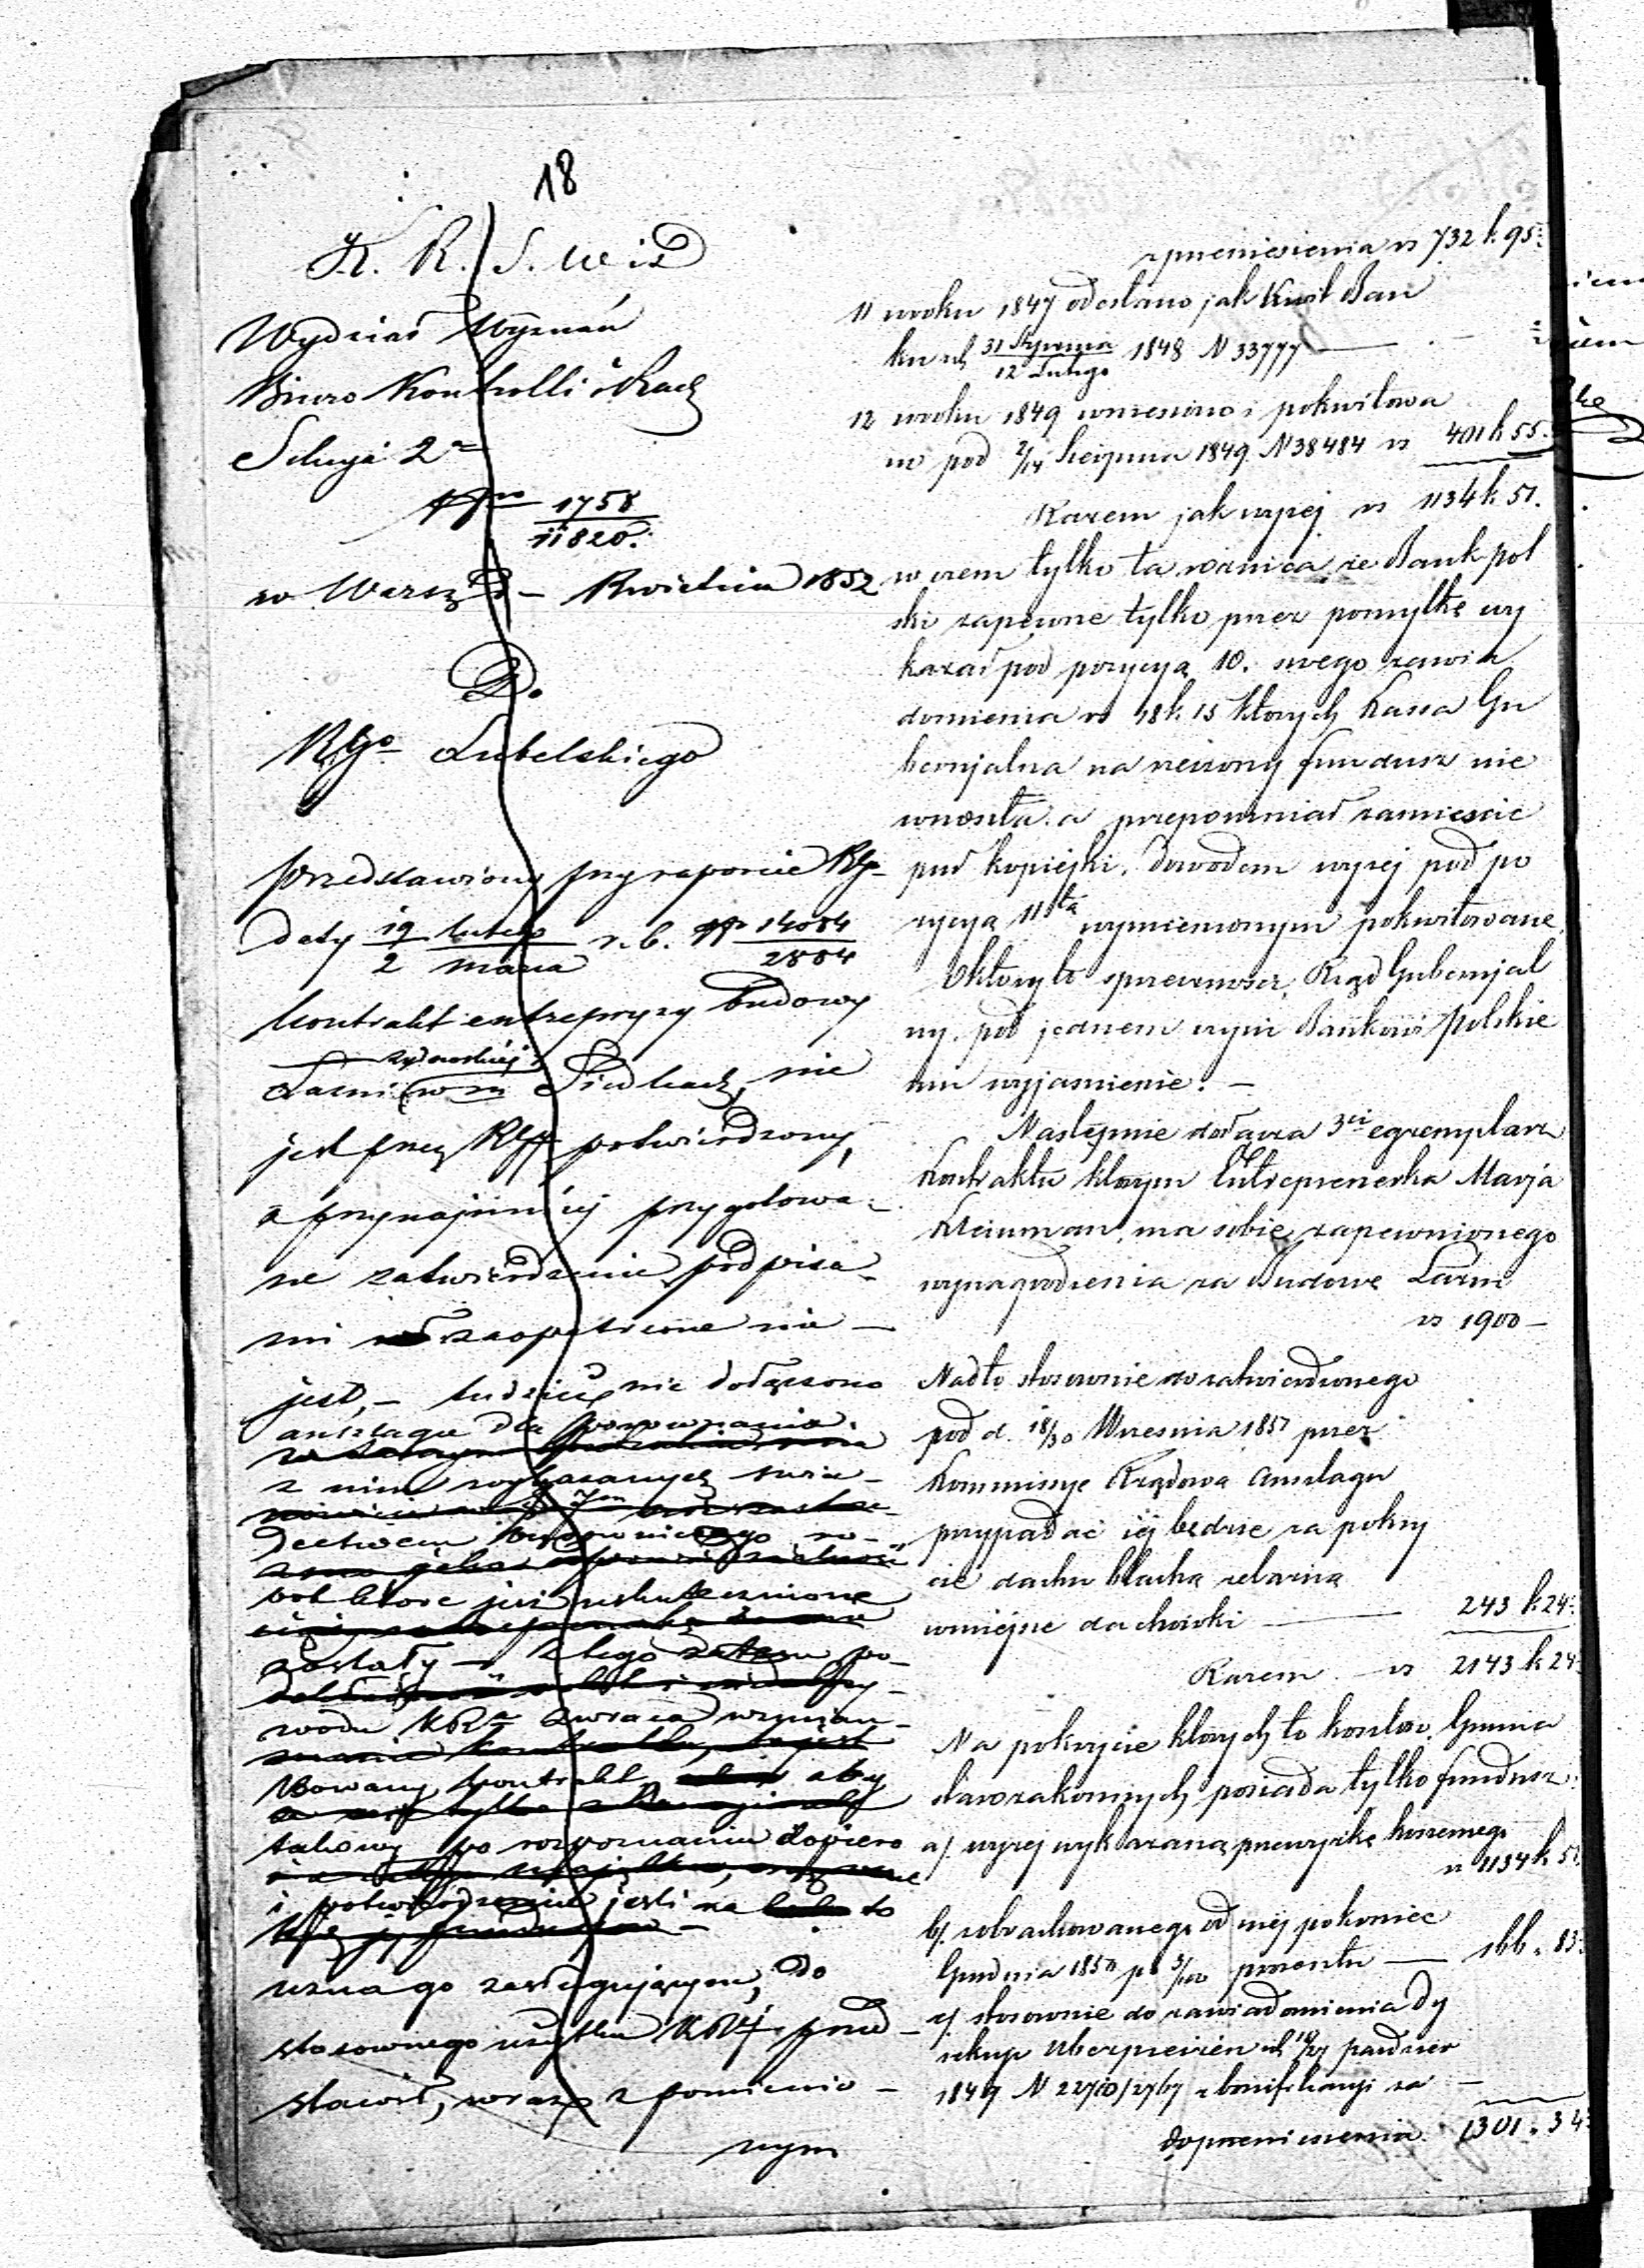 18
K. R. S. W i D
Wydział Wyznań
Biuro Kontrolli i Rach
Sekcyi 2ª
Nro 1758
11820.
w Warsz d – Kwietnia 1852
D.
RGo Lubelskiego
Przedstawiony przy raporcie RG
daty 19 lutego r. b. No 14084
2 marca 2884
kontrakt entrepryzy budowy
żydowskiej
Łaźni w m Siedlcach, nie
jest przez RG potwierdzony,
a przynajmniej przygotowa-
ne zatwierdzenie podpisa-
mi zaopatrzone nie
jest, – tudzież nie dołączono
anszlagu dla porównania
z nim wykazanych świa-
dectwem ro-
bot które już uskutecznione
zostały – Z tego zatem po-
wodu KRª zwraca wzmian-
kowany kontrakt aby
takowy po rozpoznaniu dopiero
i potwierdzeniu jeśli na to
uzna go zasługującym, do
stosownego użytku KRej przed-
stawił, wraz z pomienio-
nym
z przeniesienia rs 732 k. 95
11 w roku 1847 odesłano jak Kwit Ban
ku z d. 31 Stycznia 1848 N 33777 —
12 Lutego
12 w roku 1849 wniesiono i pokwitowa
no pod 2/14 Sierpnia 1849 N 38484 rs 401 k 55.
Razem jak wyżej rs 1134 k. 51.
w czem tylko ta różnica że Bank pol
ski zapewne tylko przez pomyłkę wy
kazał pod pozycyą 10. swego zawia
domienia rs 18 k 15 których Kassa Gu
bernjalna na rzeczony fundusz nie
wnosiła a przepomniał zamieścić
puł kopiejki. dowodem wyżej pod po
zycyą 11stą wymienionym pokwitowane.
O którey to sprzeczności, Rząd Gubernjal
ny pod jednem czyni Bankowi polskie
mu wyjaśnienie. –
Następnie dołącza 3ci egzemplarz
Kontraktu którym Entreprenerka Marja
Kleinman ma sobie zapewnionego
wynagrodzenia za Budowę Łazni
rs 1900 –
Nadto stosownie do zatwierdzonego
pod d. 18/30 Września 1851 przez
Kommissye Rządową anszlagu
przypadać jéj będzie za pokry
cie dachu blachą żelazną
w miejsce dachówki — 243 k. 24
Razem — rs 2143 k 24
Na pokrycie których to kosztów Gmina
starozakonnych posiada tylko fundusz
a/. wyżej wykazaną przewyżkę koszernego
rs 1134 k 51.
b/. zobrachowanego od niej po koniec
Grudnia 1850 po 3/100 procentu — 166 „ 83
c/. stosownie do zawiadomienia Dy
rekcyi Ubezpieczeń z d. paździer
1849 N z bonifikacyi za —
do przeniesienia 1301 „ 34